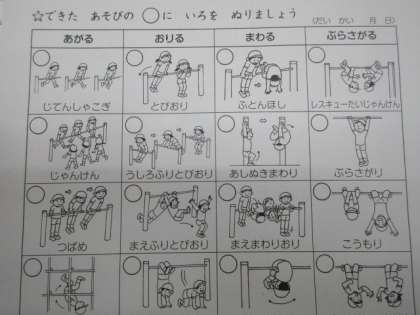 ☆できた あそびの ◯に いろを ぬりましょう
(だい かい 月 日)
あがる おりる まわる ぶらさがる
じてんしゃこぎ とびおり ふとんほし レスキューたいじゃんけん
じゃんけん うしろふりとびおり あしぬきまわり ぶらさがり
つばめ まえふりとびおり まえまわりおり こうもり